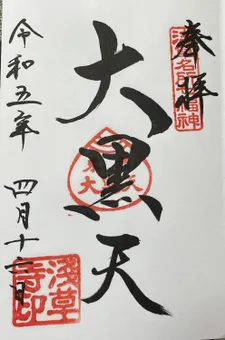 奉拝
浅草名所七福神
大黒天
令和五年 四月
淺草寺印